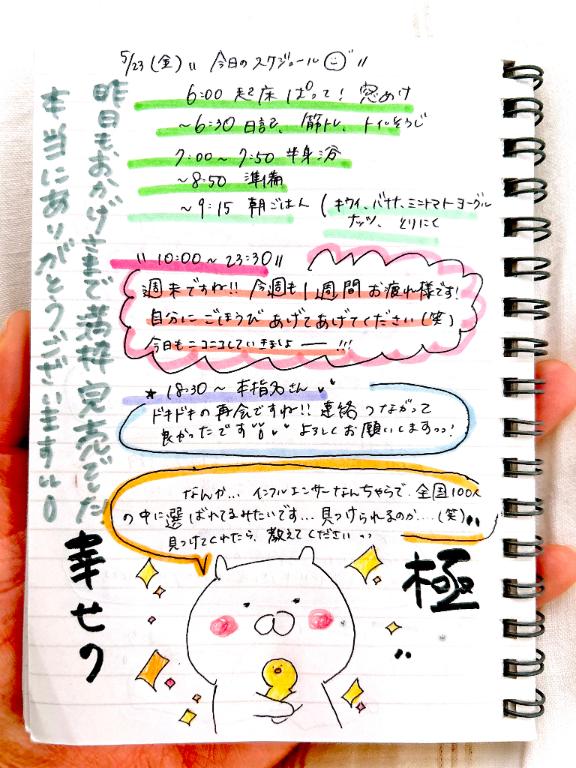 5/23(金)〃 今日のスケジュール 〃
6:00 起床 ぱって! 窓あけ
~6:30 日記、筋トレ、トイレそうじ
7:00~7:50 半身浴
~8:50 準備
~9:15 朝ごはん (キウイ、バナナ、ミニトマト ヨーグル
ナッツ、とりにく
〃10:00~23:30〃
週末ですね!! 今週も1週間お疲れ様です!
自分にごほうびあげてあげてください(笑)
今日もニコニコしていきましょー!!!
★18:30~ 本指名さん
ドキドキの再会ですね!! 連絡つながって
良かったです よろしくお願いしますっっ!
なんか... インフルエンサーなんちゃらで、全国100人
の中に選ばれてるみたいです... 見つけられるのか....(笑)
見つけてくれたら、教えてくださいっっ
昨日もおかげさまで満枠完売でした
本当にありがとうございます
幸せの
極